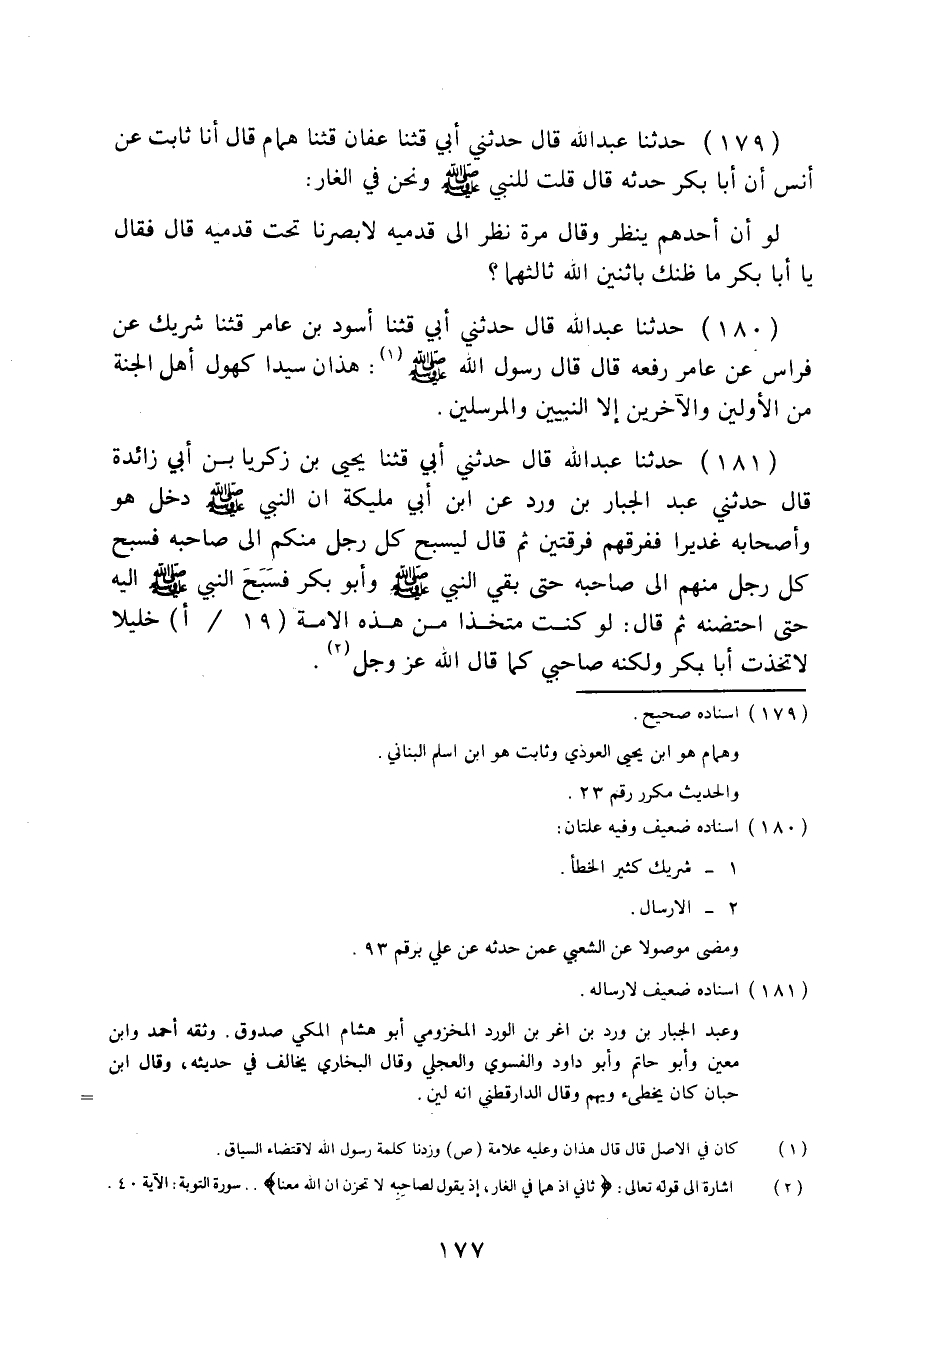 (١٧٩) حدثنا عبدالله قال حدثني أبي قثنا عفان قثنا همام قال أنا ثابت عن
أنس أن أبا بكر حدثه قال قلت للنبي ﷺ ونحن في الغار:
لو أن أحدهم ينظر وقال مرة نظر الى قدميه لابصرنا تحت قدميه قال فقال
يا أبا بكر ما ظنك باثنين الله ثالثهما؟
(١٨٠) حدثنا عبدالله قال حدثني أبي قثنا أسود بن عامر قثنا شريك عن
فراس عن عامر رفعه قال قال رسول الله ﷺ(١): هذان سيدا كهول أهل الجنة
من الأولين والآخرين إلا النبيين والمرسلين.
(١٨١) حدثنا عبدالله قال حدثني أبي قثنا يحيى بن زكريا بن أبي زائدة
قال حدثني عبد الجبار بن ورد عن ابن أبي مليكة ان النبي ﷺ دخل هو
وأصحابه غديرا ففرقهم فرقتين ثم قال ليسبح كل رجل منكم الى صاحبه فسبح
كل رجل منهم الى صاحبه حتى بقي النبي ﷺ وأبو بكر فسَبَحَ النبي ﷺ اليه
حتى احتضنه ثم قال: لو كنت متخذا من هذه الامة (١٩ / أ) خليلا
لاتخذت أبا بكر ولكنه صاحبي كما قال الله عز وجل(٢).
(١٧٩) اسناده صحيح.
وهمام هو ابن يحيى العوذي وثابت هو ابن اسلم البناني.
والحديث مكرر رقم ٢٣.
(١٨٠) اسناده ضعيف وفيه علتان:
١ - شريك كثير الخطأ.
٢ - الارسال.
ومضى موصولا عن الشعبي عمن حدثه عن علي برقم ٩٣.
(١٨١) اسناده ضعيف لارساله.
وعبد الجبار بن ورد بن اغر بن الورد المخزومي أبو هشام المكي صدوق. وثقه أحمد وابن
معين وأبو حاتم وأبو داود والفسوي والعجلي وقال البخاري يخالف في حديثه، وقال ابن
حبان كان يخطىء ويهم وقال الدارقطني انه لين. =
(١) كان في الاصل قال قال هذان وعليه علامة (ص) وزدنا كلمة رسول الله لاقتضاء السياق.
(٢) اشارة الى قوله تعالى: ﴿ثاني اذ هما في الغار، إذ يقول لصاحبه لا تحزن ان الله معنا﴾ .. سورة التوبة: الآية ٤٠.
١٧٧